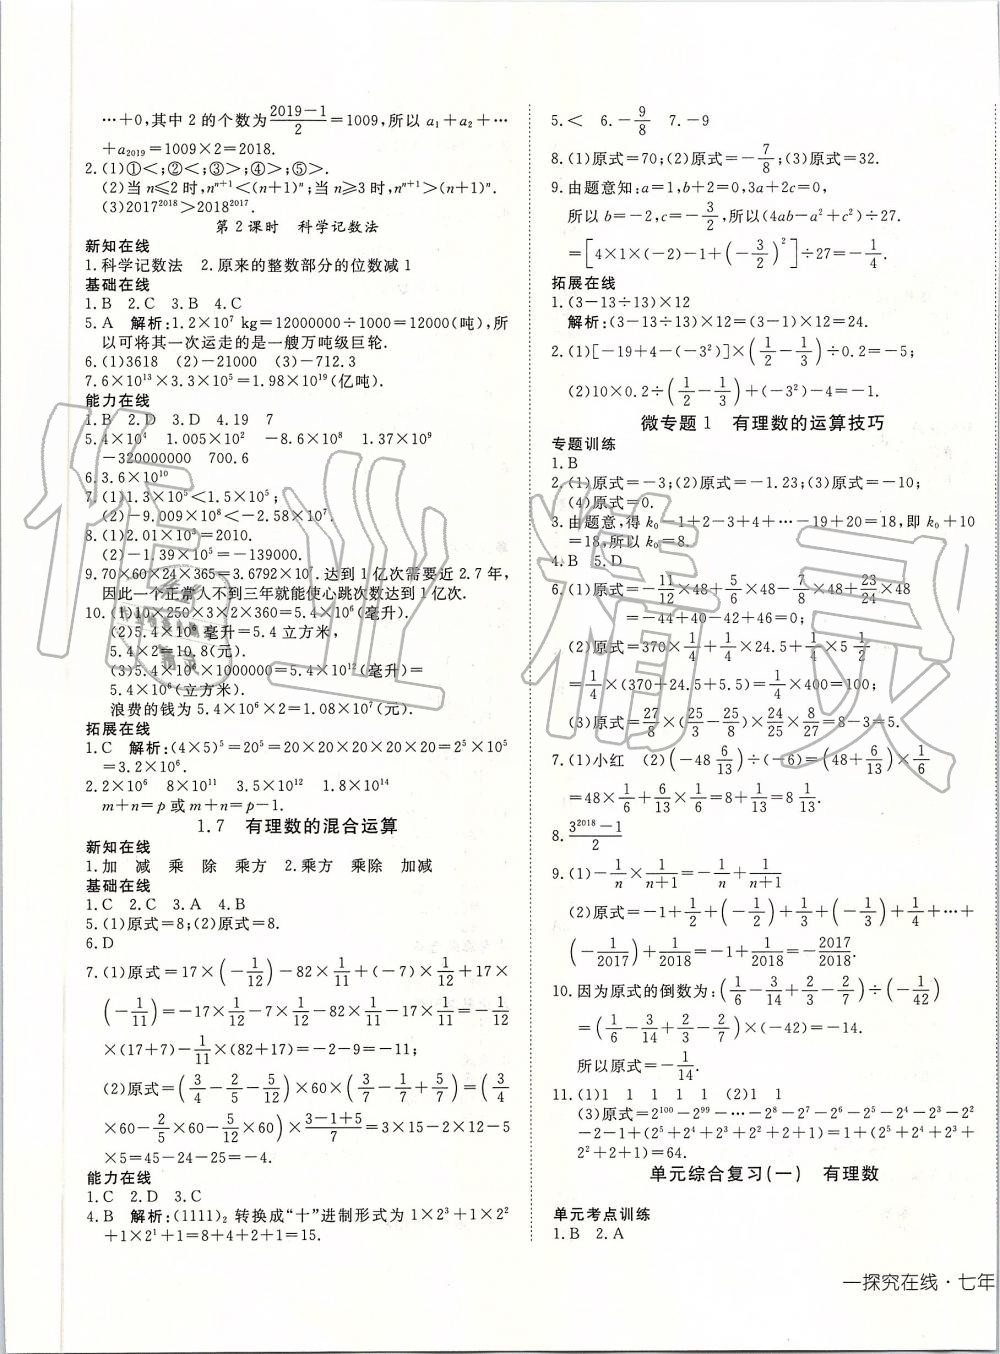 …+0,其中 2 的个数为(2019-1)/2=1009,所以 a₁+a₂+…
+a₂₀₁₉=1009×2=2018.
2.(1)①<;②<;③>;④>;⑤>.
(2)当 n≤2 时,nⁿ⁺¹<(n+1)ⁿ;当 n≥3 时,nⁿ⁺¹>(n+1)ⁿ.
(3)2017²⁰¹⁸>2018²⁰¹⁷.
第 2 课时 科学记数法
新知在线
1.科学记数法 2.原来的整数部分的位数减 1
基础在线
1.B 2.C 3.B 4.C
5.A 解析:1.2×10⁷ kg=12000000÷1000=12000(吨),所
以可将其一次运走的是一艘万吨级巨轮.
6.(1)3618 (2)-21000 (3)-712.3
7.6×10¹³×3.3×10⁵=1.98×10¹⁹(亿吨).
能力在线
1.B 2.D 3.D 4.19 7
5.4×10⁴ 1.005×10² -8.6×10⁸ 1.37×10⁹
-320000000 700.6
6.3.6×10¹⁰
7.(1)1.3×10⁵<1.5×10⁵;
(2)-9.009×10⁸<-2.58×10⁷.
8.(1)2.01×10³=2010.
(2)-1.39×10⁵=-139000.
9.70×60×24×365=3.6792×10⁷.达到 1 亿次需要近 2.7 年,
因此一个正常人不到三年就能使心跳次数达到 1 亿次.
10.(1)10×250×3×2×360=5.4×10⁶(毫升).
(2)5.4×10⁶ 毫升=5.4 立方米,
5.4×2=10.8(元).
(3)5.4×10⁶×1000000=5.4×10¹²(毫升)=
5.4×10⁶(立方米).
浪费的钱为 5.4×10⁶×2=1.08×10⁷(元).
拓展在线
1.C 解析:(4×5)⁵=20⁵=20×20×20×20×20=2⁵×10⁵
=3.2×10⁶.
2.2×10⁶ 8×10¹¹ 3.5×10¹² 1.8×10¹⁴
m+n=p 或 m+n=p-1.
1.7 有理数的混合运算
新知在线
1.加 减 乘 除 乘方 2.乘方 乘除 加减
基础在线
1.C 2.C 3.A 4.B
5.(1)原式=8;(2)原式=8.
6.D
7.(1)原式=17×(-1/12)-82×1/11+(-7)×1/12+17×
(-1/11)=-17×1/12-7×1/12-82×1/11-17×1/11=-1/12
×(17+7)-1/11×(82+17)=-2-9=-11;
(2)原式=(3/4-2/5-5/12)×60×(3/7-1/7+5/7)=(3/4
×60-2/5×60-5/12×60)×(3-1+5)/7=3×15-2×12-5
×5=45-24-25=-4.
能力在线
1.C 2.D 3.C
4.B 解析:(1111)₂ 转换成“十”进制形式为 1×2³+1×2²
+1×2¹+1=8+4+2+1=15.
5.< 6.-9/8 7.-9
8.(1)原式=70;(2)原式=-7/8;(3)原式=32.
9.由题意知:a=1,b+2=0,3a+2c=0,
所以 b=-2,c=-3/2,所以(4ab-a²+c²)÷27.
=[4×1×(-2)-1²+(-3/2)²]÷27=-1/4.
拓展在线
1.(3-13÷13)×12
解析:(3-13÷13)×12=(3-1)×12=24.
2.(1)[-19+4-(-3²)]×(1/2-1/3)÷0.2=-5;
(2)10×0.2÷(1/2-1/3)+(-3²)-4=-1.
微专题 1 有理数的运算技巧
专题训练
1.B
2.(1)原式=-3;(2)原式=-1.23;(3)原式=-10;
(4)原式=0.
3.由题意,得 k₀-1+2-3+4+…-19+20=18,即 k₀+10
=18,所以 k₀=8.
4.B 5.D
6.(1)原式=-11/12×48+5/6×48-7/8×48+23/24×48
=-44+40-42+46=0;
(2)原式=370×1/4+1/4×24.5+1/4×5 1/2
=1/4×(370+24.5+5.5)=1/4×400=100;
(3)原式=27/8×(25/3-25/8)×24/25×8/27=8-3=5.
7.(1)小红 (2)(-48 6/13)÷(-6)=(48+6/13)×1/6
=48×1/6+6/13×1/6=8+1/13=8 1/13.
8.(3²⁰¹⁸-1)/2
9.(1)-1/n×1/(n+1)=-1/n+1/(n+1)
(2)原式=-1+1/2+(-1/2)+1/3+(-1/3)+1/4+…+
(-1/2017)+1/2018=-1+1/2018=-2017/2018.
10.因为原式的倒数为:(1/6-3/14+2/3-2/7)÷(-1/42)
=(1/6-3/14+2/3-2/7)×(-42)=-14.
所以原式=-1/14.
11.(1)1 1 1 1 (2)1 1
(3)原式=2¹⁰⁰-2⁹⁹-…-2⁸-2⁷-2⁶-2⁵-2⁴-2³-2²
-2-1+(2⁵+2⁴+2³+2²+2+1)=1+(2⁵+2⁴+2³
+2²+2+1)=64.
单元综合复习(一) 有理数
单元考点训练
1.B 2.A
一探究在线·七年
作业精灵